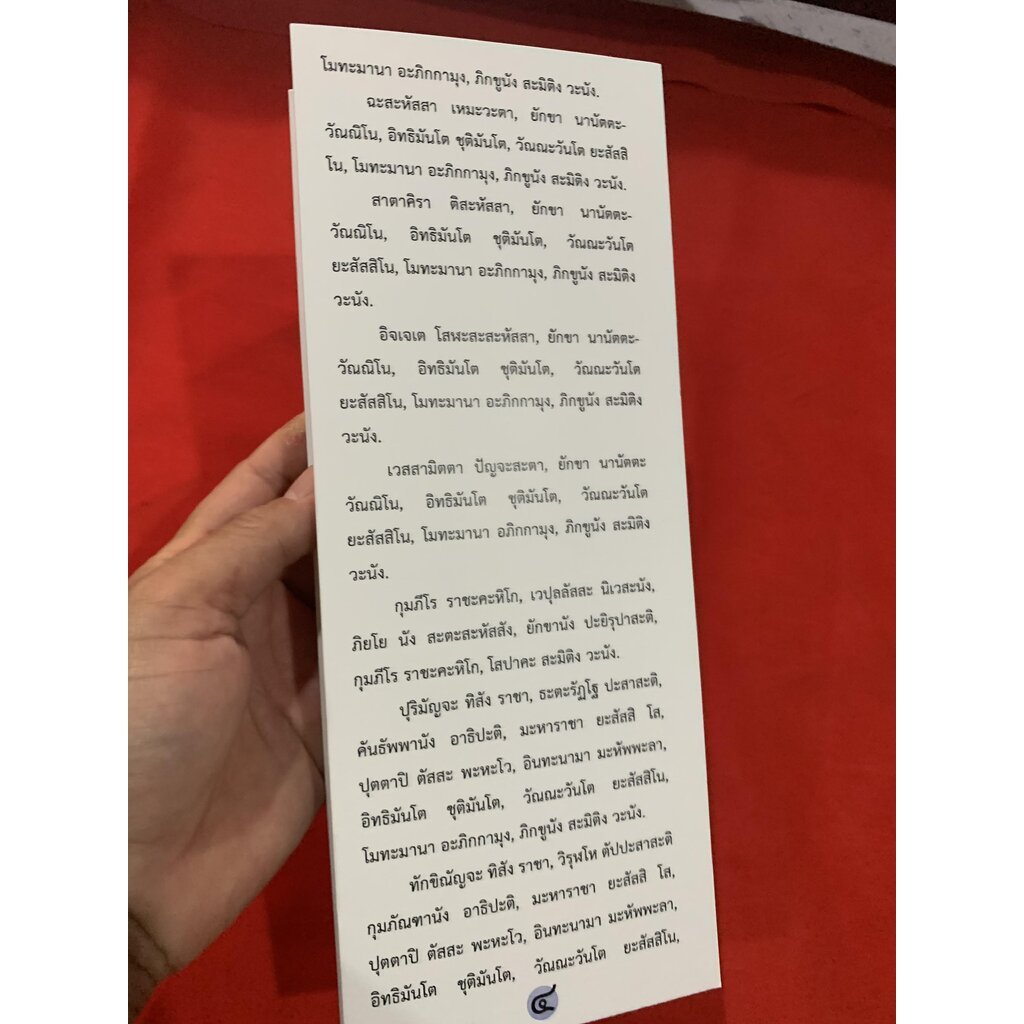 โมทะมานา อะภิกกามุง, ภิกขูนัง สะมิติง วะนัง.
ฉะสะหัสสา เหมะวะตา, ยักขา นานัตตะ-
วัณณิโน, อิทธิมันโต ชุติมันโต, วัณณะวันโต ยะสัสสิ
โน, โมทะมานา อะภิกกามุง, ภิกขูนัง สะมิติง วะนัง.
สาตาคิรา ติสะหัสสา, ยักขา นานัตตะ-
วัณณิโน, อิทธิมันโต ชุติมันโต, วัณณะวันโต
ยะสัสสิโน, โมทะมานา อะภิกกามุง, ภิกขูนัง สะมิติง
วะนัง.
อิจเจเต โสฬะสะสะหัสสา, ยักขา นานัตตะ-
วัณณิโน, อิทธิมันโต ชุติมันโต, วัณณะวันโต
ยะสัสสิโน, โมทะมานา อะภิกกามุง, ภิกขูนัง สะมิติง
วะนัง.
เวสสามิตตา ปัญจะสะตา, ยักขา นานัตตะ
วัณณิโน, อิทธิมันโต ชุติมันโต, วัณณะวันโต
ยะสัสสิโน, โมทะมานา อภิกกามุง, ภิกขูนัง สะมิติง
วะนัง.
กุมภีโร ราชะคะหิโก, เวปุลลัสสะ นิเวสะนัง,
ภิยโย นัง สะตะสะหัสสัง, ยักขานัง ปะยิรุปาสะติ,
กุมภีโร ราชะคะหิโก, โสปาคะ สะมิติง วะนัง.
ปุริมัญจะ ทิสัง ราชา, ธะตะรัฏโฐ ปะสาสะติ,
คันธัพพานัง อาธิปะติ, มะหาราชา ยะสัสสิ โส,
ปุตตาปิ ตัสสะ พะหะโว, อินทะนามา มะหัพพะลา,
อิทธิมันโต ชุติมันโต, วัณณะวันโต ยะสัสสิโน,
โมทะมานา อะภิกกามุง, ภิกขูนัง สะมิติง วะนัง.
ทักขิณัญจะ ทิสัง ราชา, วิรุฬโห ตัปปะสาสะติ
กุมภัณฑานัง อาธิปะติ, มะหาราชา ยะสัสสิ โส,
ปุตตาปิ ตัสสะ พะหะโว, อินทะนามา มะหัพพะลา,
อิทธิมันโต ชุติมันโต, วัณณะวันโต ยะสัสสิโน,
๔